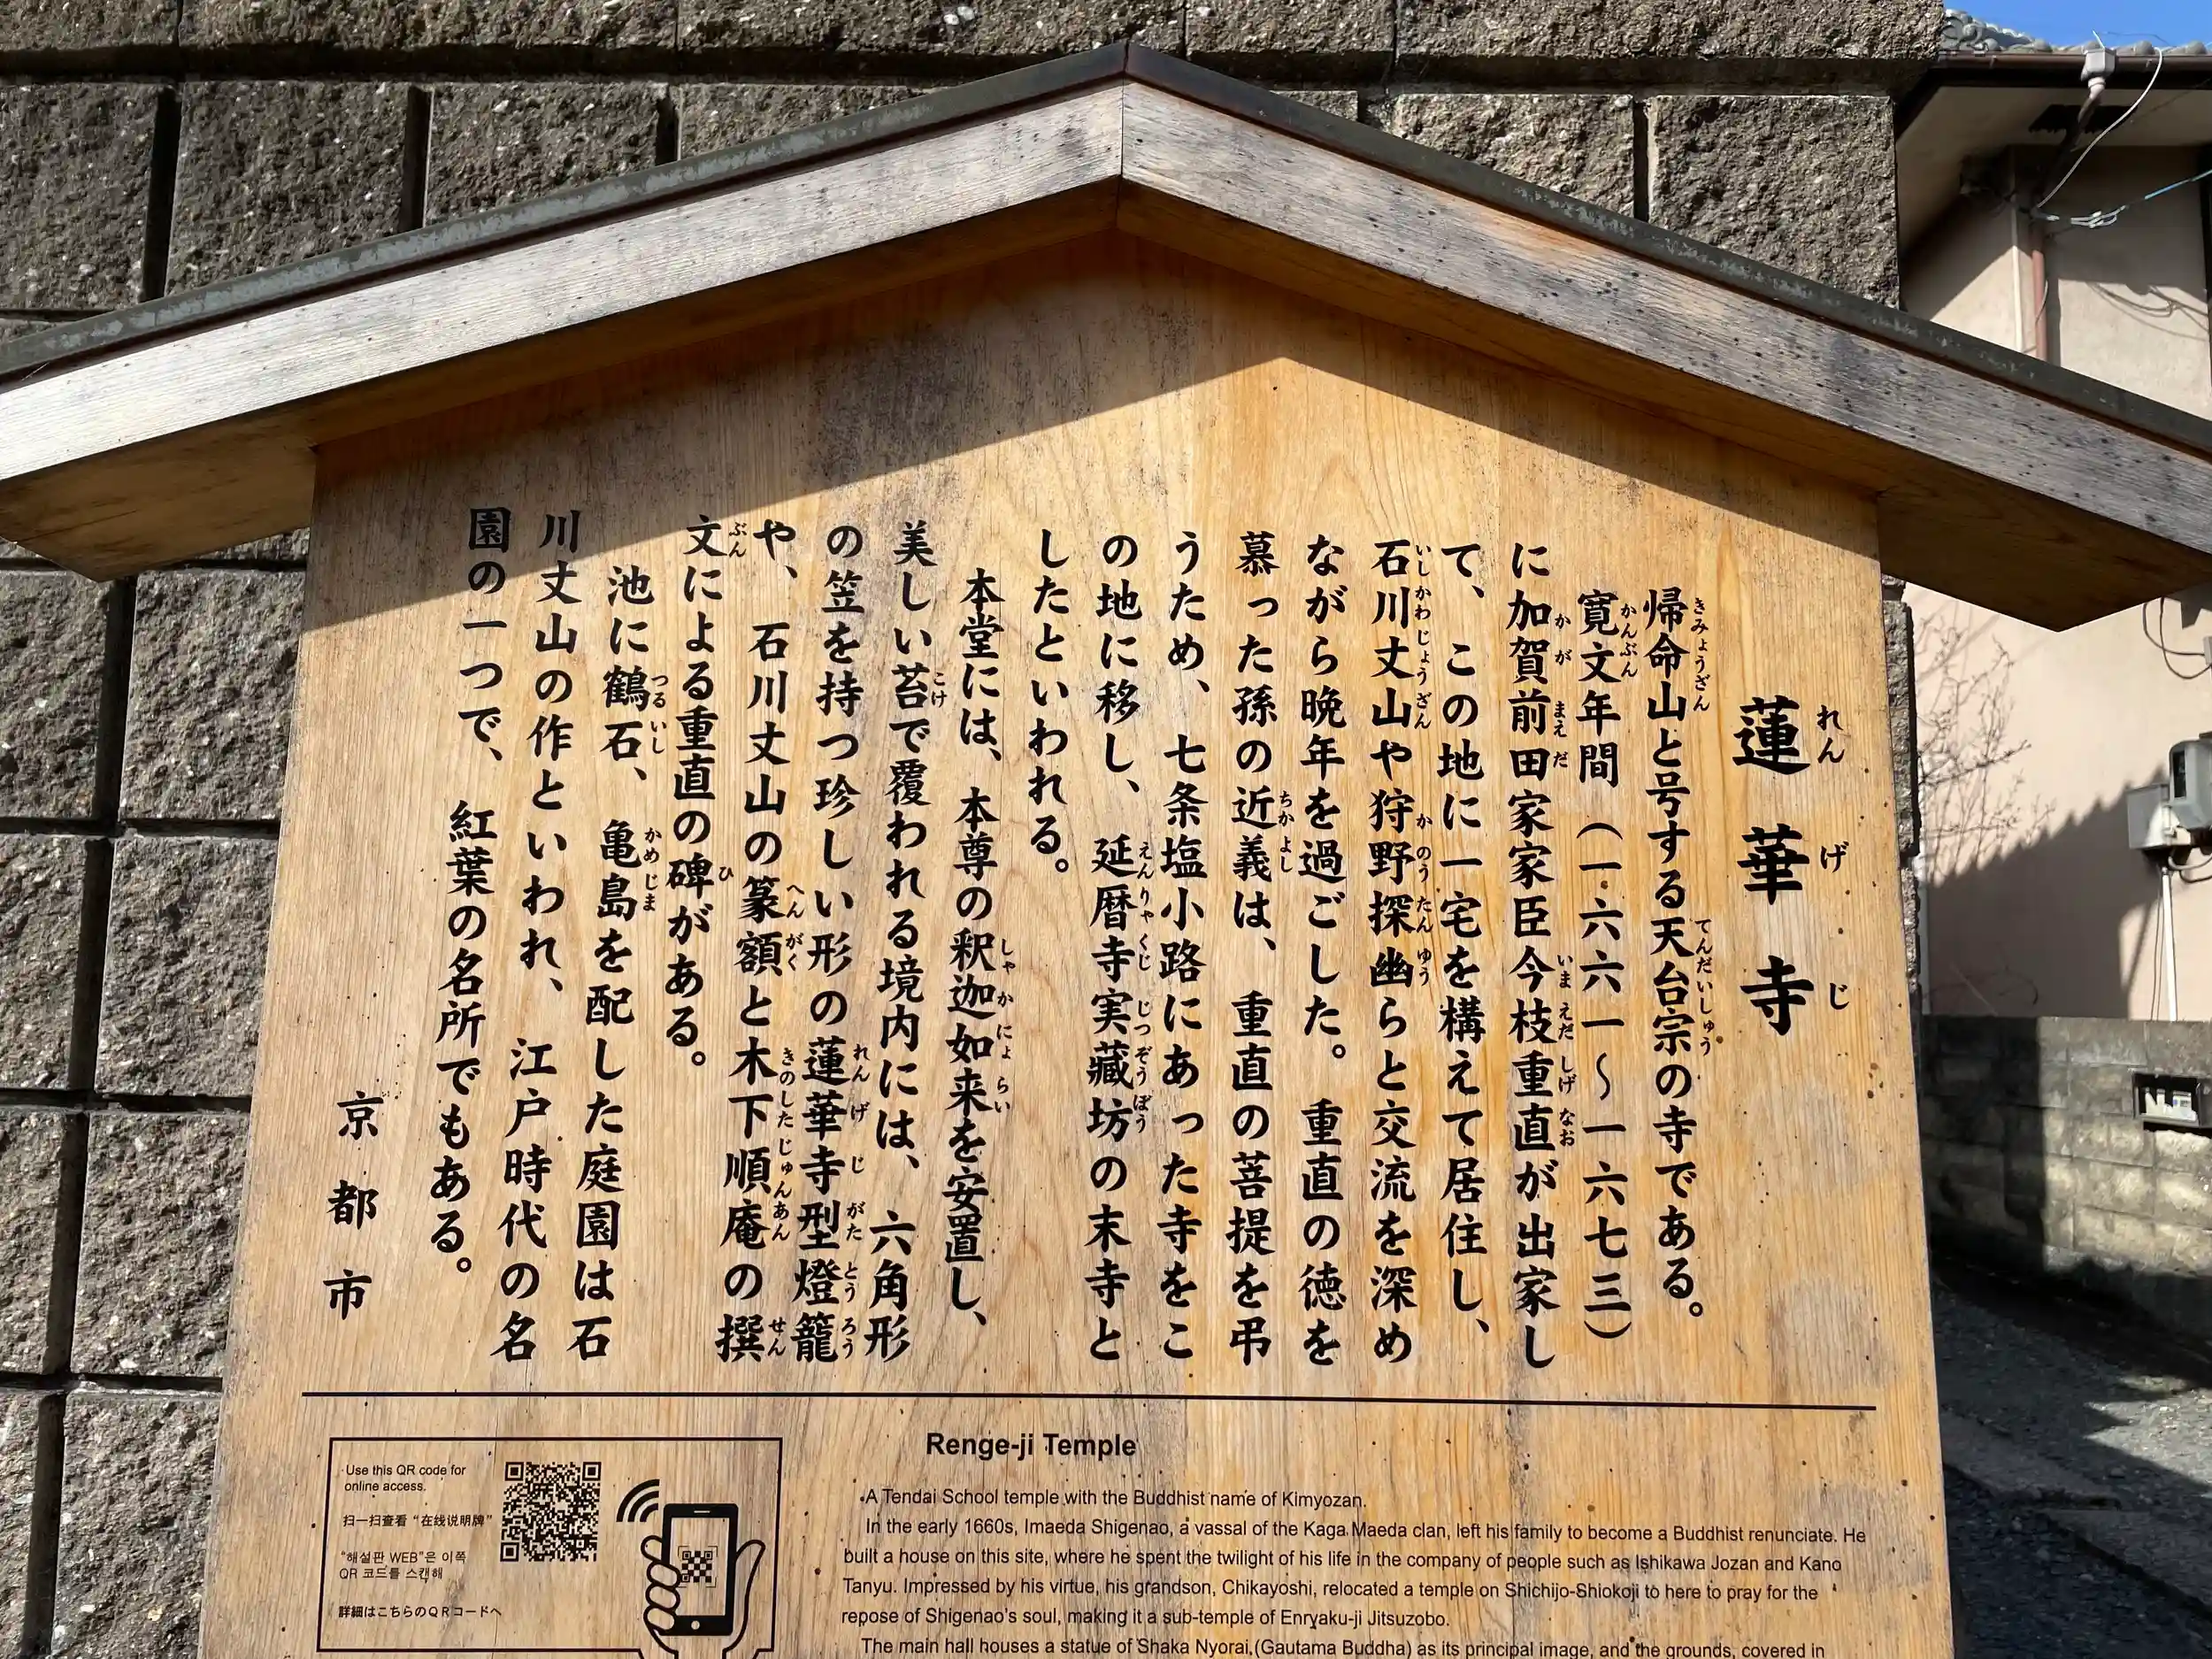 蓮華寺
帰命山と号する天台宗の寺である。
寛文年間（一六六一～一六七三）
に加賀前田家家臣今枝重直が出家し
て、この地に一宅を構えて居住し、
石川丈山や狩野探幽らと交流を深め
ながら晩年を過ごした。重直の徳を
慕った孫の近義は、重直の菩提を弔
うため、七条塩小路にあった寺をこ
の地に移し、延暦寺実藏坊の末寺と
したといわれる。
本堂には、本尊の釈迦如来を安置し、
美しい苔で覆われる境内には、六角形
の笠を持つ珍しい形の蓮華寺型燈籠
や、石川丈山の篆額と木下順庵の撰
文による重直の碑がある。
池に鶴石、亀島を配した庭園は石
川丈山の作といわれ、江戸時代の名
園の一つで、紅葉の名所でもある。
京都市
Use this QR code for
online access.
扫一扫查看“在线说明牌”
“해설판 WEB”은 이쪽
QR 코드를 스캔해
詳細はこちらのQRコードへ
Renge-ji Temple
A Tendai School temple with the Buddhist name of Kimyozan.
In the early 1660s, Imaeda Shigenao, a vassal of the Kaga Maeda clan, left his family to become a Buddhist renunciate. He
built a house on this site, where he spent the twilight of his life in the company of people such as Ishikawa Jozan and Kano
Tanyu. Impressed by his virtue, his grandson, Chikayoshi, relocated a temple on Shichijo-Shiokoji to here to pray for the
repose of Shigenao's soul, making it a sub-temple of Enryaku-ji Jitsuzobo.
The main hall houses a statue of Shaka Nyorai (Gautama Buddha) as its principal image, and the grounds, covered in